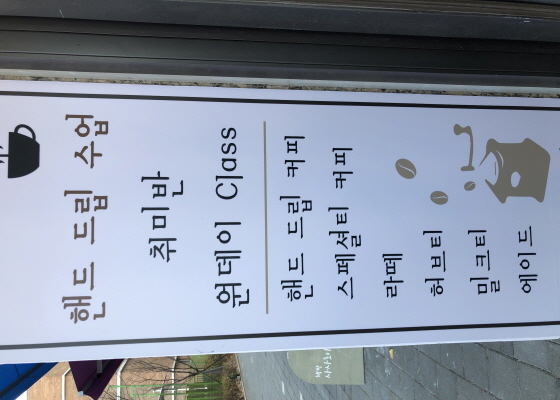 핸드 드립 수업
취미반
원데이 Class
핸드 드립 커피
스페셜티 커피
라떼
허브티
밀크티
에이드